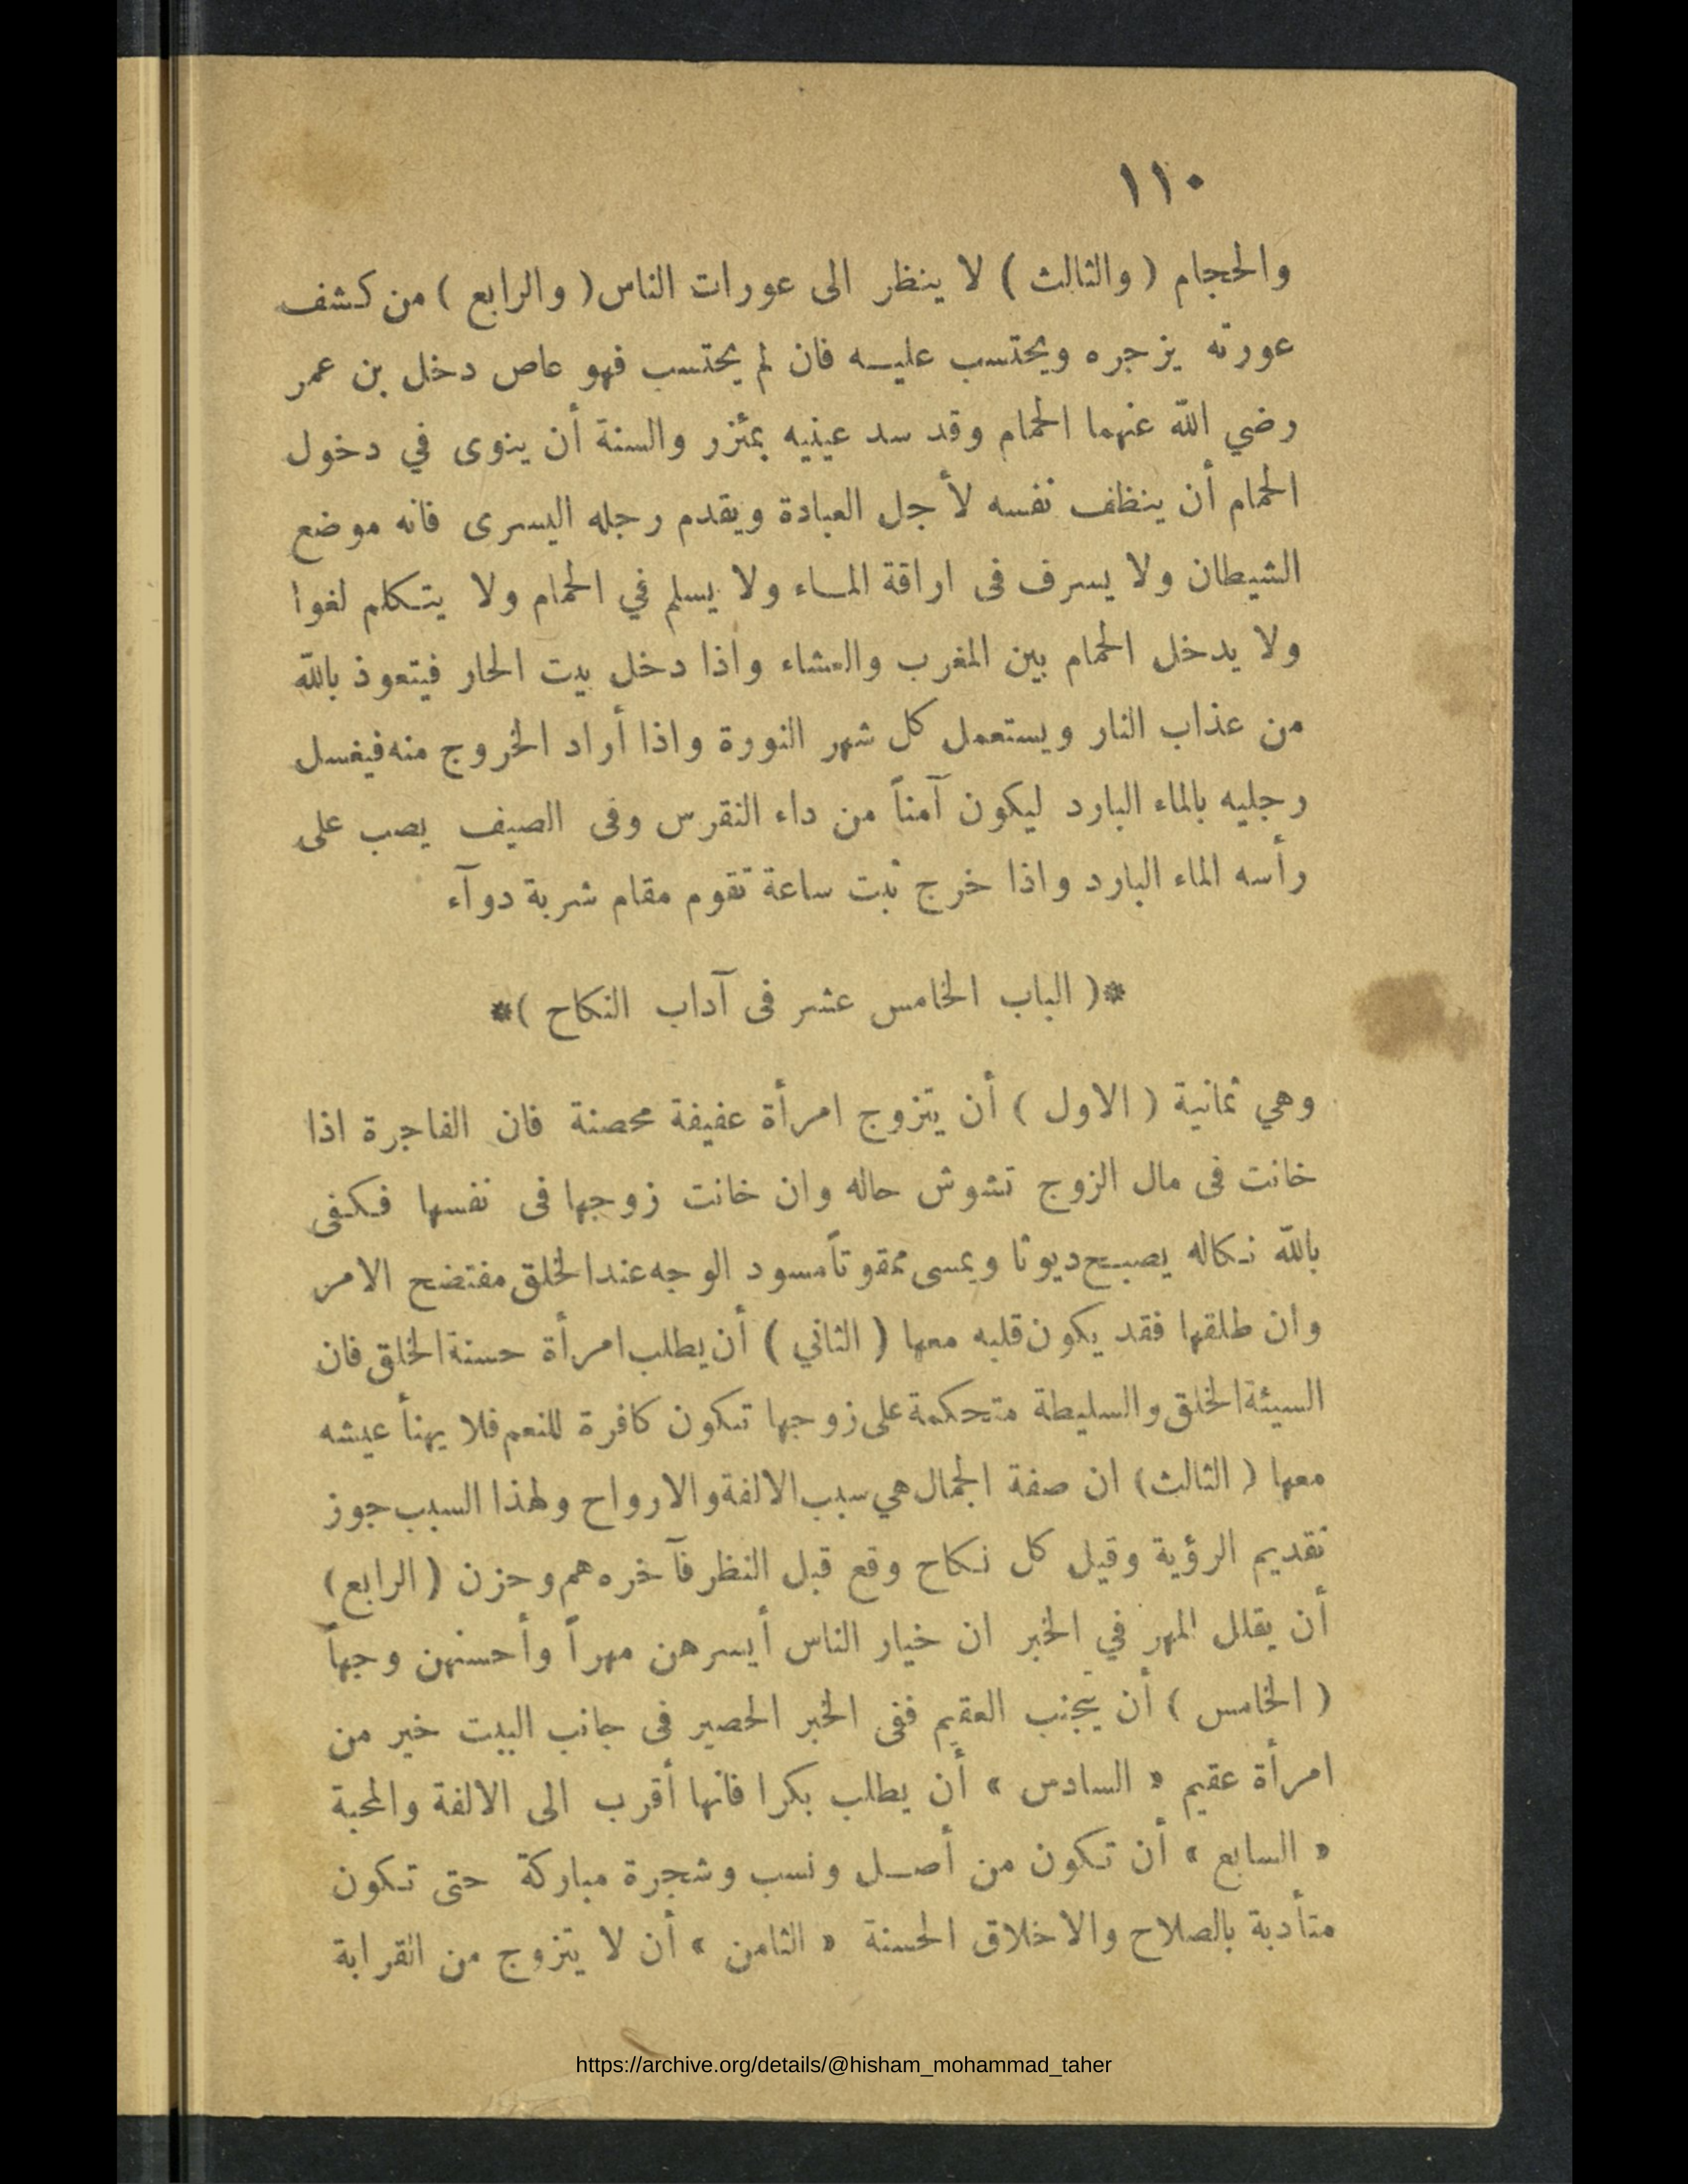 ١١٠
والحجام ( والثالث ) لا ينظر الى عورات الناس ( والرابع ) من كشف
عورته يزجره ويحتسب عليه فان لم يحتسب فهو عاص دخل بن عمر
رضي الله عنهما الحمام وقد سد عينيه بمئزر والسنة أن ينوى في دخول
الحمام أن ينظف نفسه لأجل العبادة ويقدم رجله اليسرى فانه موضع
الشيطان ولا يسرف فى اراقة الماء ولا يسلم في الحمام ولا يتكلم لغوا
ولا يدخل الحمام بين المغرب والعشاء واذا دخل بيت الحار فيتعوذ بالله
من عذاب النار ويستعمل كل شهر النورة واذا أراد الخروج منه فيغسل
رجليه بالماء البارد ليكون آمناً من داء النقرس وفى الصيف يصب على
رأسه الماء البارد واذا خرج ثبت ساعة تقوم مقام شربة دوآء
*( الباب الخامس عشر فى آداب النكاح )*
وهي ثمانية ( الاول ) أن يتزوج امرأة عفيفة محصنة فان الفاجرة اذا
خانت فى مال الزوج تشوش حاله وان خانت زوجها فى نفسها فكفى
بالله نكاله يصبح ديوثا ويمسى ممقوتاً مسود الوجه عند الخلق مفتضح الامر
وان طلقها فقد يكون قلبه معها ( الثاني ) أن يطلب امرأة حسنة الخلق فان
السيئة الخلق والسليطة متحكمة على زوجها تكون كافرة للنعم فلا يهنأ عيشه
معها ( الثالث ) ان صفة الجمال هي سبب الالفة والارواح ولهذا السبب جوز
تقديم الرؤية وقيل كل نكاح وقع قبل النظر فآخره هم وحزن ( الرابع )
أن يقلل المهر في الخبر ان خيار الناس أيسرهن مهراً وأحسنهن وجهاً
( الخامس ) أن يتجنب العقيم ففى الخبر الحصير فى جانب البيت خير من
امرأة عقيم « السادس » أن يطلب بكرا فانها أقرب الى الالفة والمحبة
« السابع » أن تكون من أصل ونسب وشجرة مباركة حتى تكون
متأدبة بالصلاح والاخلاق الحسنة « الثامن » أن لا يتزوج من القرابة
https://archive.org/details/@hisham_mohammad_taher